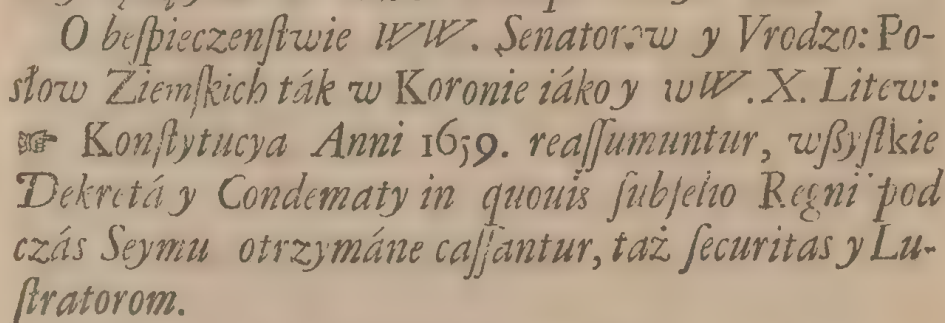 O beſpieczenſtwie WW. Senatorow y Vrodzo: Po-
słow Ziemſkich ták w Koronie iáko y w W. X. Litew:
☞ Konſtytucya Anni 1659. reaſſumuntur, wſzyſtkie
Dekretá y Condematy in quouis ſubſelio Regni pod
czás Seymu otrzymáne caſſantur, taż ſecuritas y Lu-
ſtratorom.